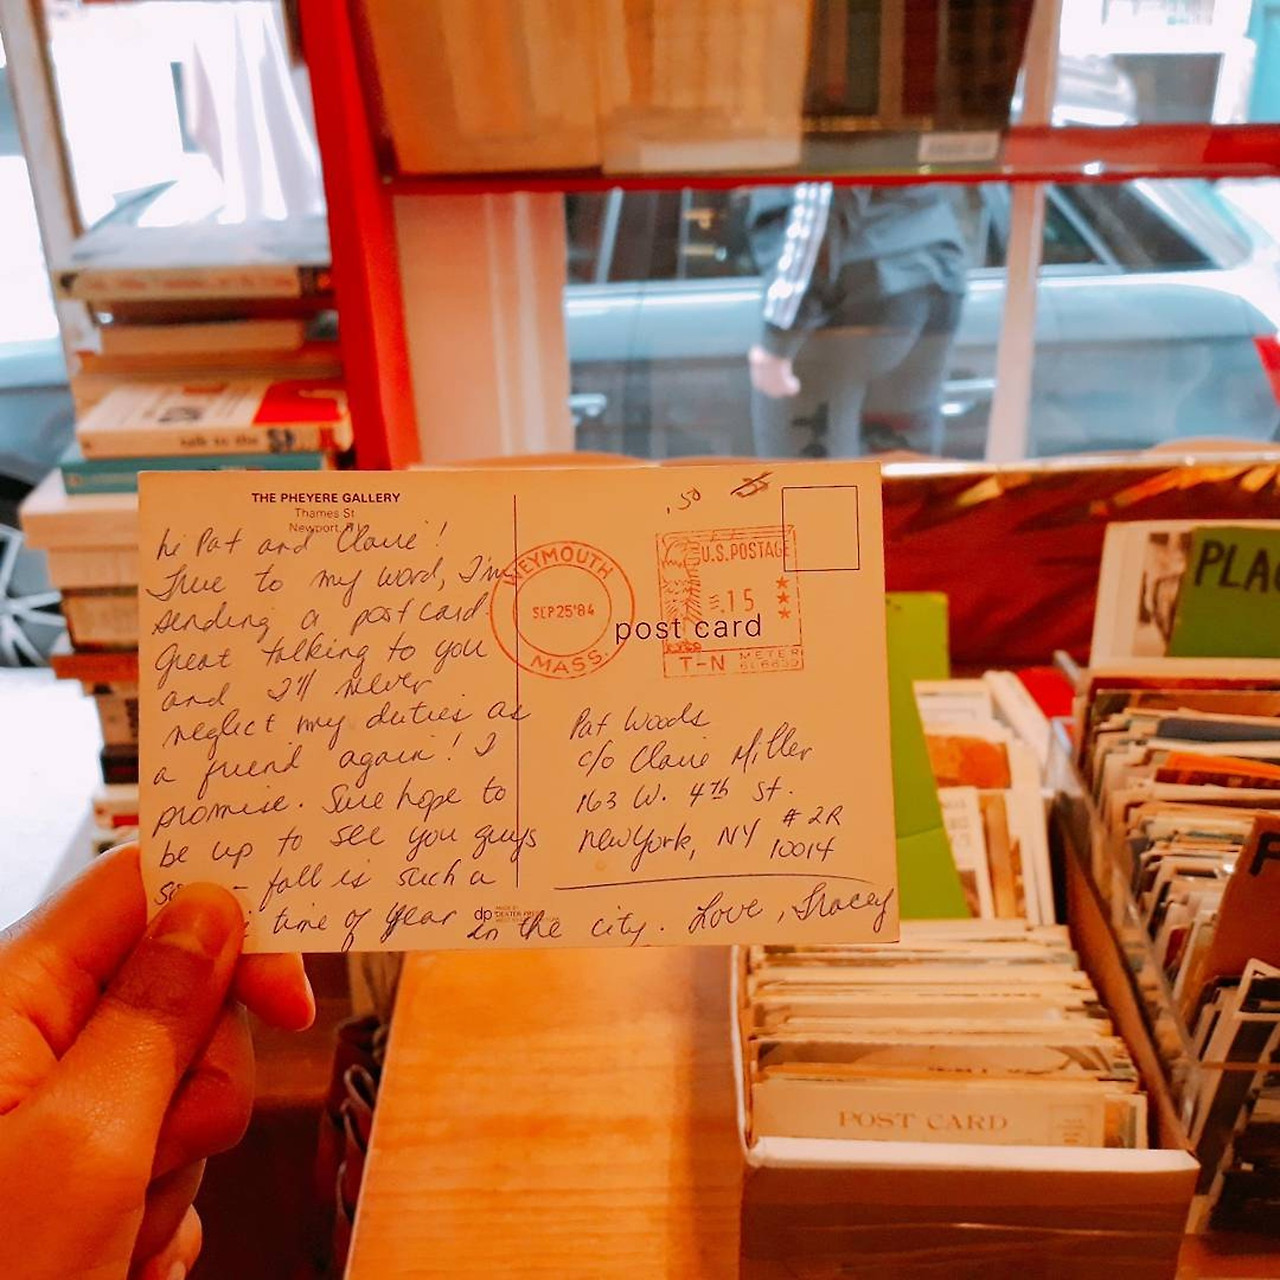 THE PHEYERE GALLERY
Thames St
Newport, R.I.
hi Pat and Claire!
True to my word, I'm
sending a postcard.
Great talking to you
and I'll never
neglect my duties as
a friend again! I
promise. Sure hope to
be up to see you guys
- fall is such a
time of year in the city. Love, Tracey
.50
WEYMOUTH
SEP25'84
MASS.
U.S. POSTAGE
.15
T-N METER
post card
Pat Woods
c/o Claire Miller
163 W. 4th St.
#2R
New York, NY 10014
dp
MADE BY
DEXTER PRESS
talk to the
PLAC
F
POST CARD